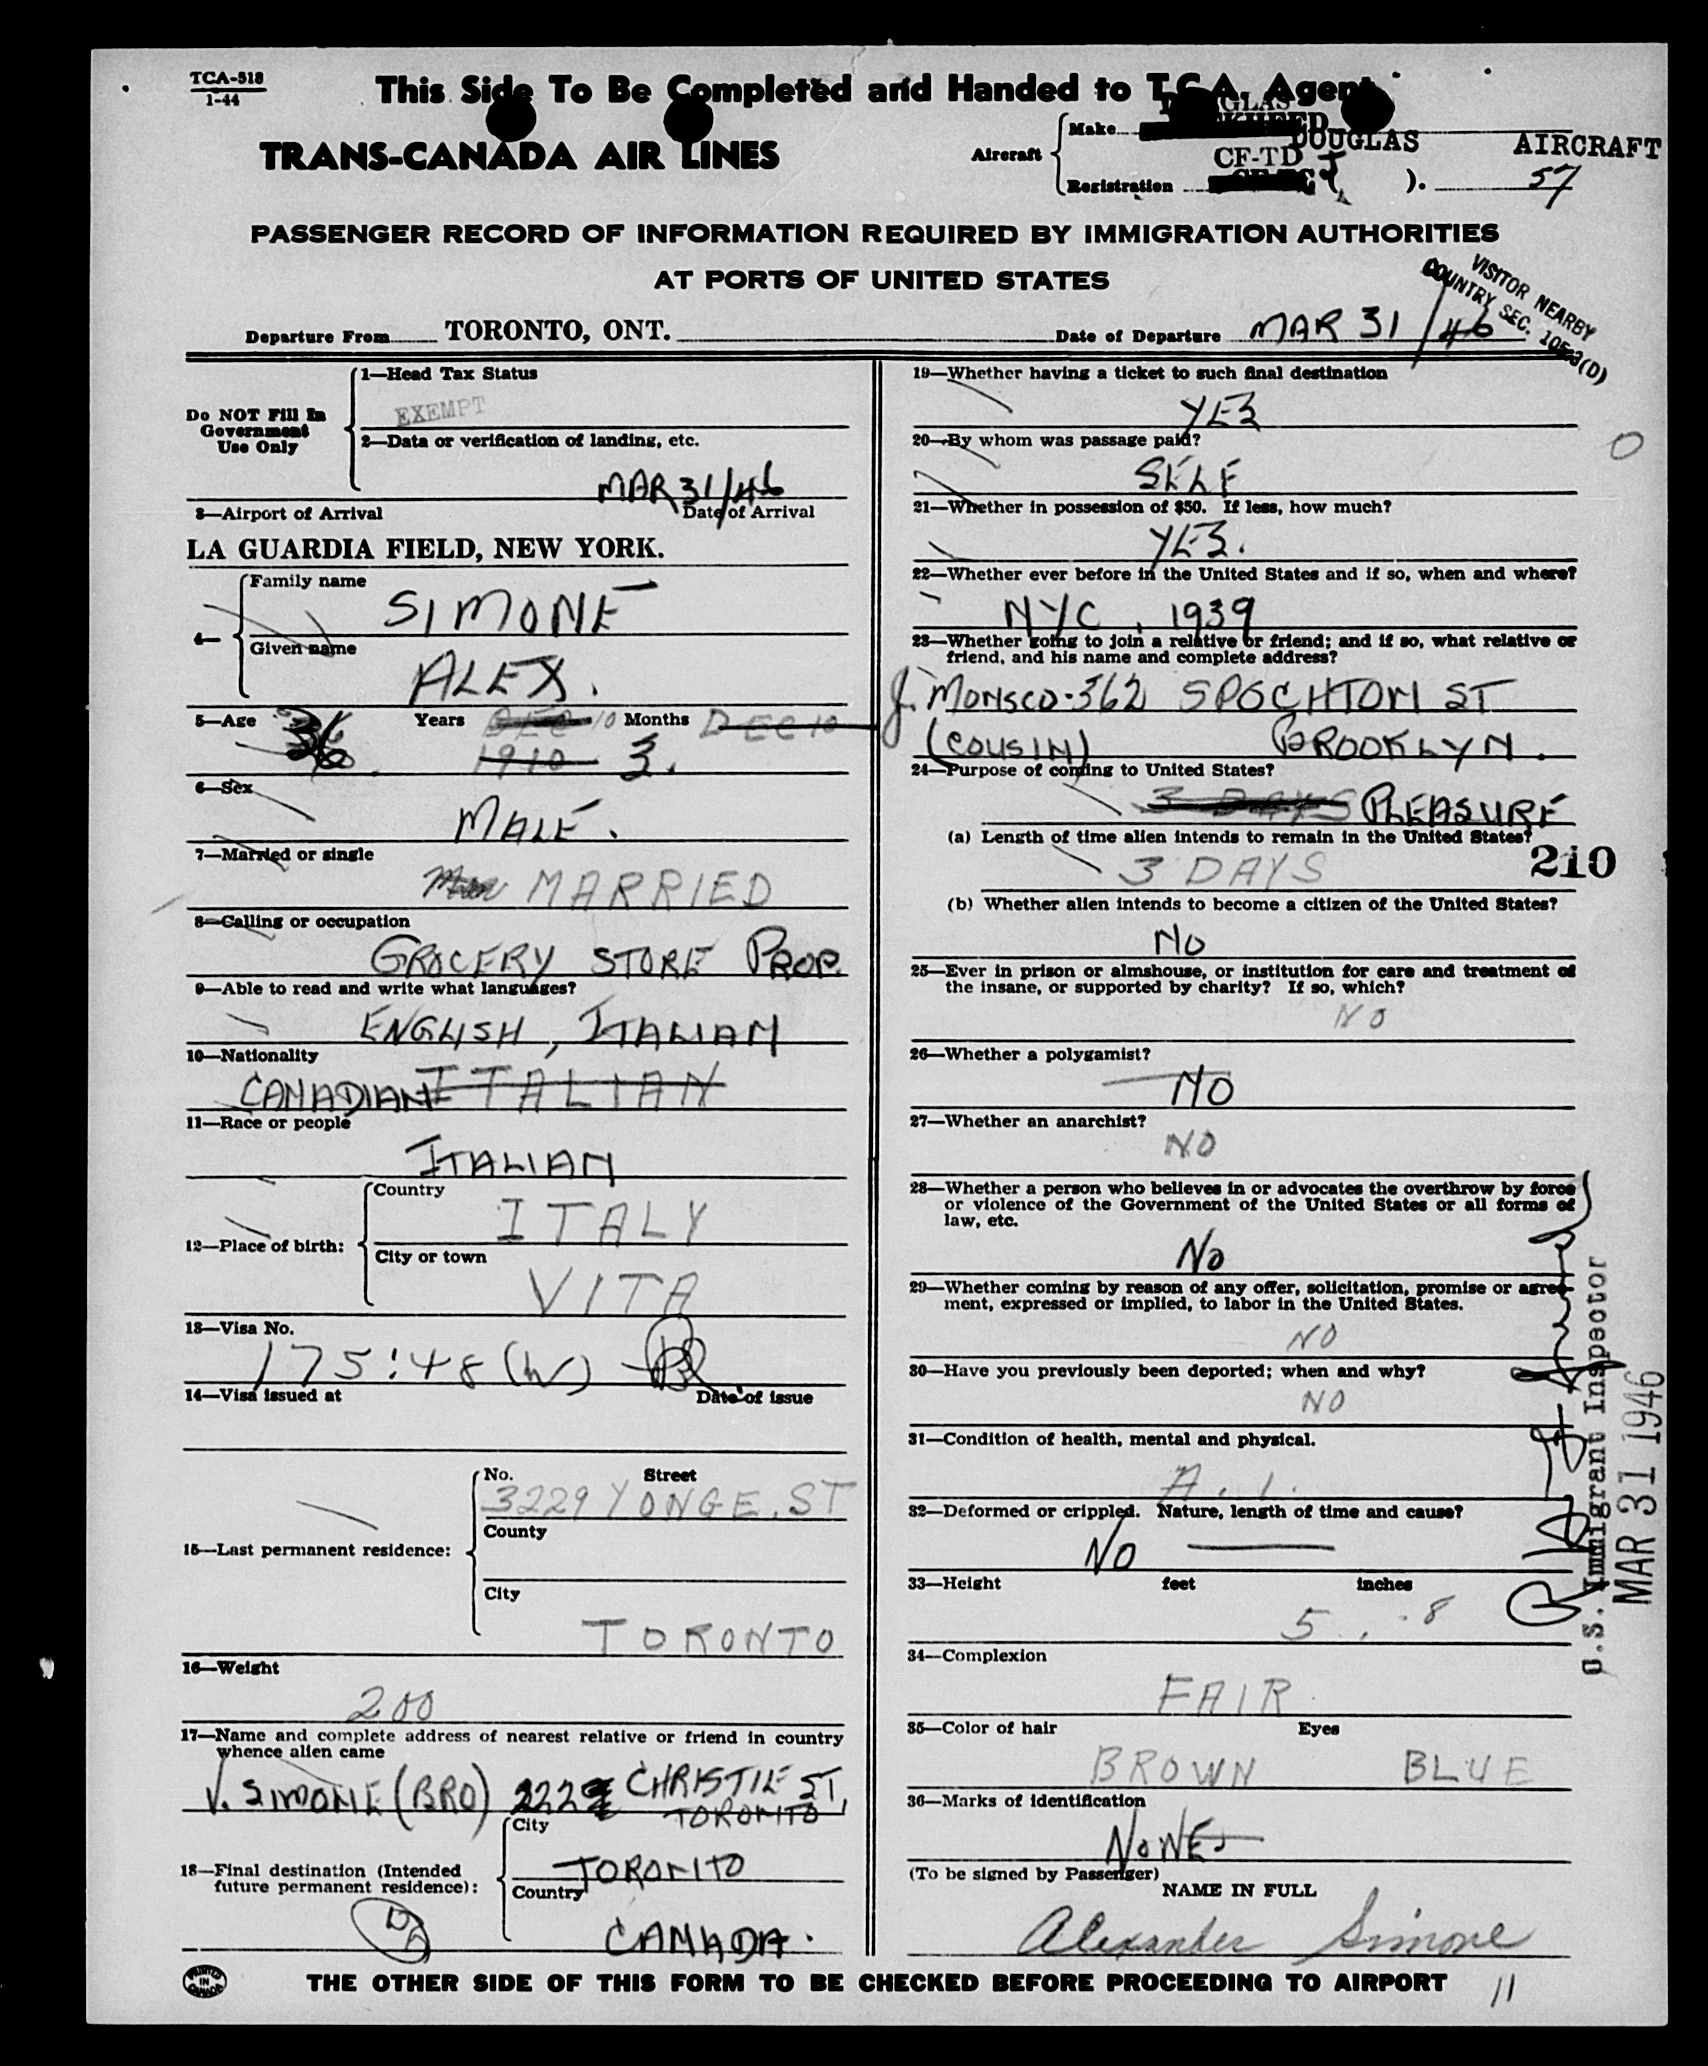 TCA-518
1-44
This Side To Be Completed and Handed to T.C.A. Agent
TRANS-CANADA AIR LINES
Aircraft
Make
DOUGLAS AIRCRAFT
CF-TD J
Registration ). 57
PASSENGER RECORD OF INFORMATION REQUIRED BY IMMIGRATION AUTHORITIES
AT PORTS OF UNITED STATES
VISITOR NEARBY
COUNTRY SEC.
Departure From TORONTO, ONT. Date of Departure MAR 31/46
Do NOT Fill In
Government
Use Only
1—Head Tax Status
EXEMPT
2—Data or verification of landing, etc.
MAR 31/46
3—Airport of Arrival Date of Arrival
LA GUARDIA FIELD, NEW YORK.
4—
Family name
SIMONE
Given name
ALEX.
5—Age 36 Years DEC 10 Months DEC 10
1910 3.
6—Sex
MALE.
7—Married or single
MARRIED
8—Calling or occupation
GROCERY STORE PROP.
9—Able to read and write what languages?
ENGLISH, ITALIAN
10—Nationality
CANADIAN ITALIAN
11—Race or people
ITALIAN
12—Place of birth:
Country
ITALY
City or town
VITA
13—Visa No.
175:48 (W)
14—Visa issued at Date of issue
15—Last permanent residence:
No. Street
3229 YONGE. ST
County
City
TORONTO
16—Weight
200
17—Name and complete address of nearest relative or friend in country
whence alien came
V. SIMONE (BRO) CHRISTIE ST,
TORONTO
18—Final destination (Intended
future permanent residence):
City
TORONTO
Country
CANADA.
19—Whether having a ticket to such final destination
YES
20—By whom was passage paid?
SELF
21—Whether in possession of $50. If less, how much?
YES.
22—Whether ever before in the United States and if so, when and where?
NYC, 1939
23—Whether going to join a relative or friend; and if so, what relative or
friend, and his name and complete address?
J. 362 ST
(COUSIN) BROOKLYN.
24—Purpose of coming to United States?
3 DAYS PLEASURE
(a) Length of time alien intends to remain in the United States?
3 DAYS
210
(b) Whether alien intends to become a citizen of the United States?
NO
25—Ever in prison or almshouse, or institution for care and treatment of
the insane, or supported by charity? If so, which?
NO
26—Whether a polygamist?
NO
27—Whether an anarchist?
NO
28—Whether a person who believes in or advocates the overthrow by force
or violence of the Government of the United States or all forms of
law, etc.
No
29—Whether coming by reason of any offer, solicitation, promise or agree-
ment, expressed or implied, to labor in the United States.
NO
30—Have you previously been deported; when and why?
NO
31—Condition of health, mental and physical.
A.1.
32—Deformed or crippled. Nature, length of time and cause?
NO
33—Height feet inches
5. 8
34—Complexion
FAIR
35—Color of hair Eyes
BROWN BLUE
36—Marks of identification
NONE
U.S. Immigrant Inspector
MAR 31 1946
(To be signed by Passenger)
NAME IN FULL
Alexander Simone
PRINTED IN CANADA
THE OTHER SIDE OF THIS FORM TO BE CHECKED BEFORE PROCEEDING TO AIRPORT
11